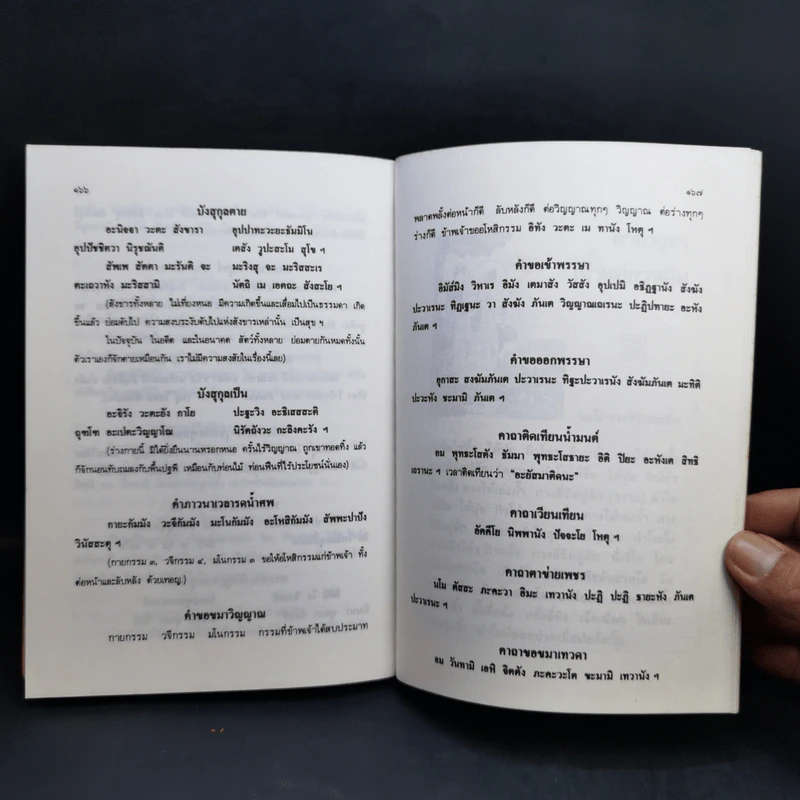 ๑๖๖
บังสุกุลตาย
อะนิจจา วะตะ สังขารา อุปปาทะวะยะธัมมิโน
อุปปัชชิตวา นิรุชฌันติ เตสัง วูปะสะโม สุโข ฯ
สัพเพ สัตตา มะรันติ จะ มะริงสุ จะ มะริสสะเร
ตะเถวาหัง มะริสสามิ นัตถิ เม เอตถะ สังสะโย ฯ
(สังขารทั้งหลาย ไม่เที่ยงหนอ มีความเกิดขึ้นและเสื่อมไปเป็นธรรมดา เกิด
ขึ้นแล้ว ย่อมดับไป ความสงบระงับดับไปแห่งสังขารเหล่านั้น เป็นสุข ฯ
ในปัจจุบัน ในอดีต และในอนาคต สัตว์ทั้งหลาย ย่อมตายกันหมดทั้งนั้น
ตัวเราเองก็จักตายเหมือนกัน เราไม่มีความสงสัยในเรื่องนี้เลย)
บังสุกุลเป็น
อะจิรัง วะตะยัง กาโย ปะฐะวิง อะธิเสสสะติ
ฉุฑโฑ อะเปตะวิญญาโณ นิรัตถังวะ กะลิงคะรัง ฯ
(ร่างกายนี้ มิได้ยั่งยืนนานหรอกหนอ ครั้นไร้วิญญาณ ถูกเขาทอดทิ้ง แล้ว
ก็จักนอนทับถมลงกับพื้นปฐพี เหมือนกับท่อนไม้ ท่อนฟืนที่ไร้ประโยชน์นั่นเอง)
คำภาวนาเวลารดน้ำศพ
กายะกัมมัง วะจีกัมมัง มะโนกัมมัง อะโหสิกัมมัง สัพพะปาปัง
วินัสสะตุ ฯ
(กายกรรม ๓, วจีกรรม ๔, มโนกรรม ๓ ขอให้อโหสิกรรมแก่ข้าพเจ้า ทั้ง
ต่อหน้าและลับหลัง ด้วยเทอญ.)
คำขอขมาวิญญาณ
กายกรรม วจีกรรม มโนกรรม กรรมที่ข้าพเจ้าได้สบประมาท
๑๖๗
พลาดพลั้งต่อหน้าก็ดี ลับหลังก็ดี ต่อวิญญาณทุกๆ วิญญาณ ต่อร่างทุกๆ
ร่างก็ดี ข้าพเจ้าขออโหสิกรรม อิทัง วะตะ เม ทานัง โหตุ ฯ
คำขอเข้าพรรษา
อิมัสมิง วิหาเร อิมัง เตมาสัง วัสสัง อุปเปมิ อธิฏฐานัง สังฆัง
ปะวาเรนะ ทิฏเฐนะ วา สังฆัง ภันเต วิญญาณเถเรนะ ปะฏิปทายะ อะหัง
ภันเต ฯ
คำขอออกพรรษา
อุกาสะ สงฆัมภันเต ปะวาเรนะ ทิฐะปะวาเรนัง สังฆัมภันเต มะทิติ
ปะวะหัง ขะมามิ ภันเต ฯ
คาถาติดเทียนน้ำมนต์
อม พุทธะโสตัง ธัมมา พุทธะโสธายะ อิติ ปิยะ อะหังเต สิทธิ
เถรานะ ฯ เวลาติดเทียนว่า "อะยัสมาติดนะ"
คาถาเวียนเทียน
อัคคีโย นิพพานัง ปัจจะโย โหตุ ฯ
คาถาตาข่ายเพชร
นโม ตัสสะ ภะคะวา อิมะ เทวานัง ปะฏิ ปะฏิ ธายะหัง ภันเต
ปะวาเรนะ ฯ
คาถาขอขมาเทวดา
อม วันทามิ เอหิ จิตตัง ภะคะวะโต ขะมามิ เทวานัง ฯ